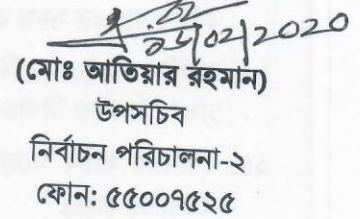 ০৬/০২/২০২০
(মোঃ আতিয়ার রহমান)
উপসচিব
নির্বাচন পরিচালনা-২
ফোন: ৫৫০০৭৫২৫